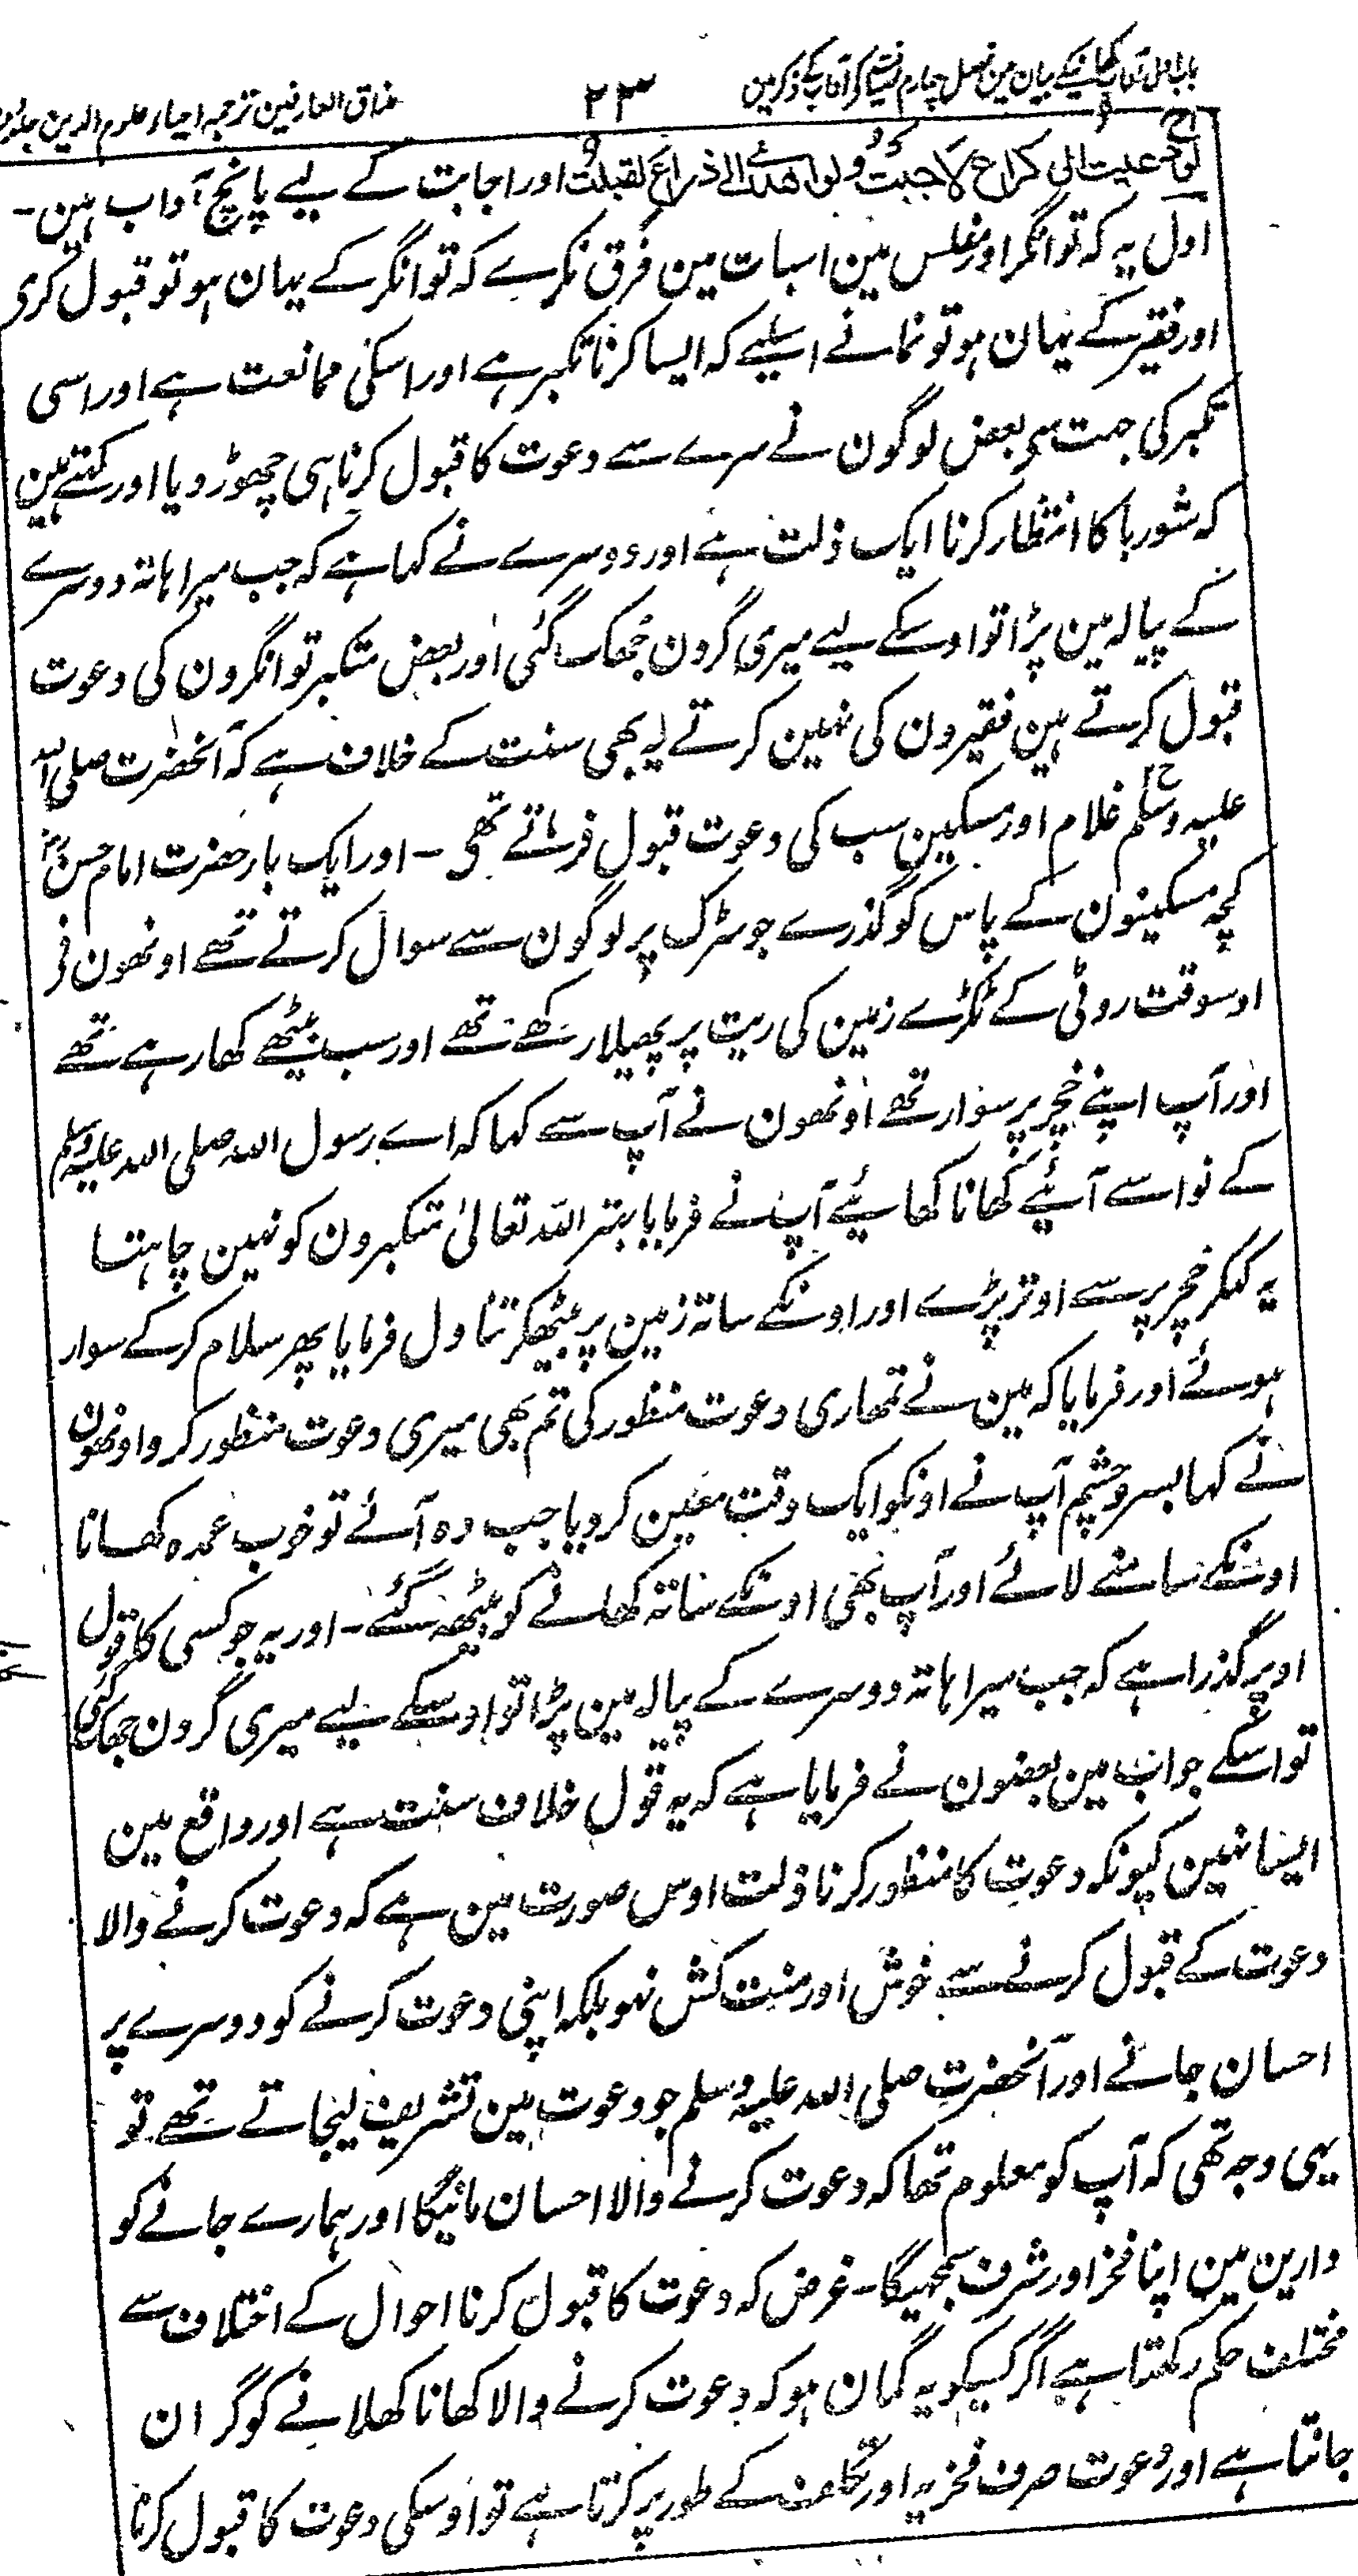 باب اول آداب کھانیکے بیان مین فصل چہارم ضیافت کے آداب کے ذکر مین
۲۳
مذاق العارفین ترجمہ احیاء علوم الدین جلد دوم
لو دعیت الی کراع لاجبت ولو اھدی الی ذراع لقبلت اور اجابت کے لیے پانچ آداب ہین۔
اول یہ کہ توانگر اور مفلس مین اسبات مین فرق نکرے کہ توانگر کے یہان ہو تو قبول کری
اور فقیر کے یہان ہو تو نمانے اسلیے کہ ایسا کرنا تکبر ہے اور اسکی ممانعت ہے اور اسی
تکبر کی جہت سی بعض لوگون نے سرے سے دعوت کا قبول کرنا ہی چھوڑ دیا اور کہتے ہین
کہ شوربا کا انتظار کرنا ایک ذلت ہے اور دوسرے نے کہا ہے کہ جب میرا ہاتہ دوسرے
کے پیالہ مین پڑا تو اوسکے لیے میری گردن جھک گئی اور بعض متکبر توانگرون کی دعوت
قبول کرتے ہین فقیرون کی نہین کرتے یہ بھی سنت کے خلاف ہے کہ آنحضرت صلی اللہ
علیہ وسلم غلام اور مسکین سب کی دعوت قبول فرماتے تھی ۔ اور ایک بار حضرت امام حسن رض
کچہ مسکینون کے پاس کو گذرے جو سڑک پر لوگون سے سوال کرتے تھے اونھون نی
اوسوقت روٹی کے ٹکڑے زمین کی ریت پر پھیلا رکھے تھے اور سب بیٹھے کھا رہے تھے
اور آپ اپنے خچر پر سوار تھے اونھون نے آپ سے کہا کہ اے رسول اللہ صلی اللہ علیہ وسلم
کے نواسے آئیے کھانا کھائیے آپ نے فرمایا بہتر اللہ تعالیٰ متکبرون کو نہین چاہتا
یہ کہکر خچر پر سے اوتر پڑے اور اونکے ساتہ زمین پر بیٹھکر تناول فرمایا پھر سلام کر کے سوار
ہوئے اور فرمایا کہ مین نے تمھاری دعوت منظور کی تم بھی میری دعوت منظور کرو اونھون
نے کہا بسر و چشم آپ نے اونکو ایک وقت معین کر دیا جب وہ آئے تو خوب عمدہ کھانا
اونکے سامنے لائے اور آپ بھی اونکے ساتہ کھانے کو بیٹھہ گئے ۔ اور یہ جو کسی کا قول
اوپر گذرا ہے کہ جب میرا ہاتہ دوسرے کے پیالہ مین پڑا تو اوسکے لیے میری گردن جھک گئی
تو اسکے جواب مین بعضون نے فرمایا ہے کہ یہ قول خلاف سنت ہے اور واقع مین
ایسا نہین کیونکہ دعوت کا منظور کرنا ذلت اوس صورت مین ہے کہ دعوت کرنے والا
دعوت کے قبول کرنے سے خوش اور منت کش نہو بلکہ اپنی دعوت کرنے کو دوسرے پر
احسان جانے اور آنحضرت صلی اللہ علیہ وسلم جو دعوت مین تشریف لیجاتے تھے تو
یہی وجہ تھی کہ آپ کو معلوم تھا کہ دعوت کرنے والا احسان مانیگا اور ہمارے جانے کو
دارین مین اپنا فخر اور شرف سمجھیگا ۔ غرض کہ دعوت کا قبول کرنا احوال کے اختلاف سے
مختلف حکم رکھتا ہے اگر کسیکو یہ گمان ہو کہ دعوت کرنے والا کھانا کھلانے کو گران
جانتا ہے اور دعوت صرف فخریہ اور تکلف کے طور پر کرتا ہے تو اوسکی دعوت کا قبول کرنا